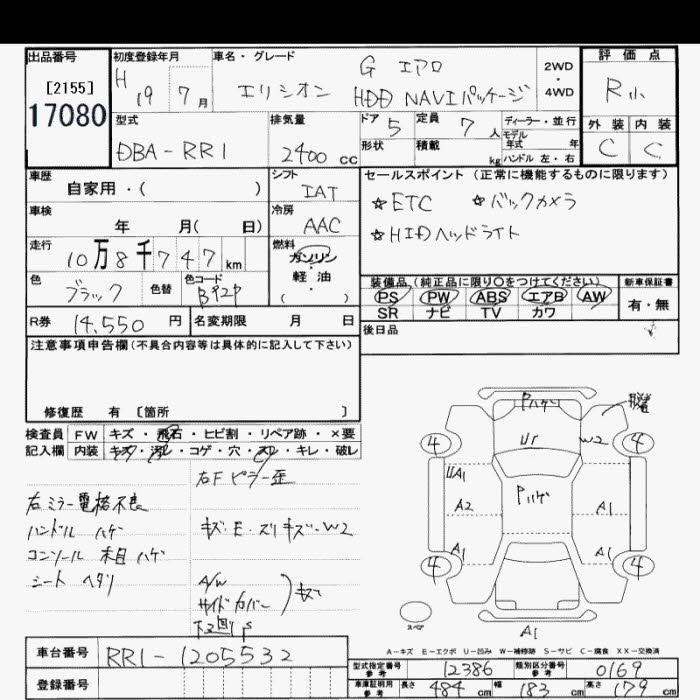 出品番号
[2155]
17080
初度登録年月
H 19 7月
車名・グレード
G エアロ
エリシオン HDD NAVIパッケージ
2WD
・
4WD
評価点
R小
外装 内装
C C
型式
DBA-RR1
排気量
2400 cc
ドア 5
形状
定員 7 人
積載 kg
ディーラー・並行
モデル
年式 年
ハンドル 左・右
車歴
自家用・( )
シフト
IAT
車検
年 月( 日)
冷房
AAC
走行
10万8千747km
燃料
ガソリン
・
軽油
( )
色
ブラック
色替
色コード
B92P
R券 14,550 円
名変期限 月 日
セールスポイント(正常に機能するものに限ります)
☆ETC ☆バックカメラ
☆HIDヘッドライト
装備品(純正品に限り○をつけてください)
PS PW ABS エアB AW
SR ナビ TV カワ
新車保証書
有・無
後日品
注意事項申告欄(不具合内容等は具体的に記入して下さい)
修復歴 有 [箇所 ]
検査員 FW キズ・飛石・ヒビ割・リペア跡・×要
記入欄 内装 キズ・汚レ・コゲ・穴・スレ・キレ・破レ
右Fピラー歪
右ミラー電格不良
ハンドル ハゲ
キズ・E・ズリキズ・W2
コンソール 木目ハゲ
シート ヘタリ
A/W
サイドカバー
キズ
下廻りS
Pハゲ
U1
W2
4 4
UA1
A2
Pハゲ
A1
A1
A1
4 4
スペア
A1
A-キズ E-エクボ U-凹み W-補修跡 S-サビ C-腐食 XX-交換済
車台番号 RR1-1205532
登録番号
型式指定番号 参考 12386
類別区分番号 参考 0169
車庫証明用 参考 長さ 484 cm 幅 183 cm 高さ 179 cm